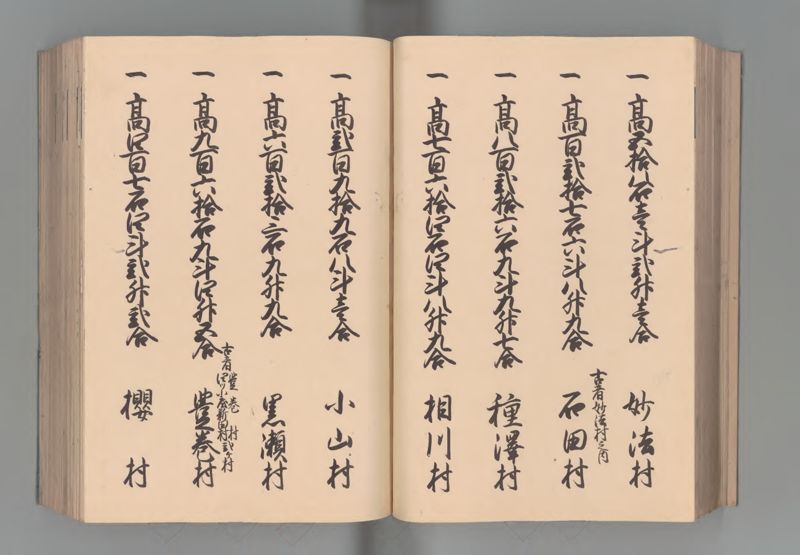 一 高五拾八石壱斗弐升壱合 妙法村
一 高百弐拾七石六斗八升九合 石田村
古者妙法村之内
一 高八百弐拾六石九斗九升七合 種澤村
一 高七百六拾四石四斗八升九合 相川村
一 高弐百九拾九石八斗壱合 小山村
一 高六百弐拾三石九升九合 黒瀬村
一 高九百六拾石九斗四升五合 豊巻村
古者豊巻村
新田村弐ヶ村
一 高四百七石四斗弐升弐合 櫻村